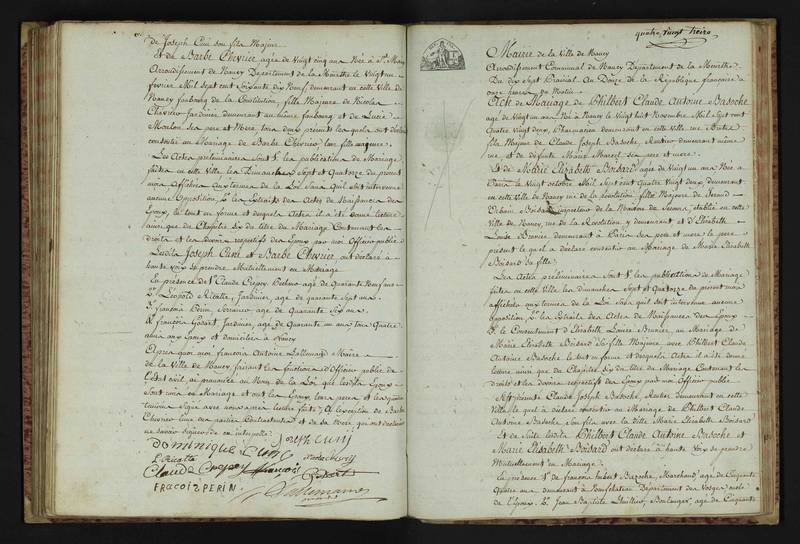 de Joseph Cuni son fils Majeur
Et de Barbe Chevrier agée de Vingt cinq ans Née à
Arrondissement de Nancy Département de la Meurthe le Vingt neuf
fevrier Mil Sept cent Soixante dix Neuf, demeurant en cette Ville de
Nancy faubourg de la Constitution, fille Majeure de Nicolas
Chevrier Jardinier demeurant au même faubourg et de Lucie
ses père et Mère, tous deux présents lesquels ont déclaré
consentir au Mariage de Barbe Chevrier leur fille majeure
Les Actes préliminaires sont 1° les publications de Mariage
faites en cette Ville les Dimanches Sept et Quatorze du present
mois Affichées aux termes de la Loi sans Qu'il soit intervenu
aucune Opposition, 2° les Extraits des Actes de Naissances des
Epoux, le tout en forme et desquels Actes il a été donné lecture
ainsi que du Chapitre Six du titre du Mariage Contenant les
droits et les devoirs respectifs des Epoux par moi Officier public
Lesdits Joseph Cuni et Barbe Chevrier ont déclaré à
haute voix se prendre Mutuellement en Mariage
En présence de 1° Claude agé de Quarante Neuf ans
2° Léopold Ricatte, Jardinier, agé de quarante sept ans
3° françois Perin, Serrurier agé de Quarante Six ans
4° françois Jardinier, agé de Quarante un ans tous Quatre
amis aux Epoux et domiciliés à Nancy
Après quoi moi françois Antoine Lallemand Maire
de la Ville de Nancy faisant les fonctions d'Officier public de
l'Etat civil, ai prononcé au Nom de la Loi que lesdits Epoux
Sont unis en Mariage et ont les Epoux, leurs pères et les quatre
témoins signé avec nous après lecture faite, à l'exception de Barbe
Chevrier l'une des parties Contractantes et de sa Mère, qui ont déclaré
ne savoir signer de ce interpellé
DOMINIQUE CUNY Joseph CUNY
L Ricatte
Claude françois
FRACOIS PERIN Lallemand
quatre Vingt treize
Mairie de la Ville de Nancy
Arrondissement Communal de Nancy Département de la Meurthe
Du dix Sept Prairial An Douze de la République française à
onze heures du Matin
Acte de Mariage de Philbert Claude Antoine Basoche
agé de Vingt un ans Né à Nancy le Vingt huit Novembre Mil Sept cent
Quatre Vingt deux, Pharmacien demeurant en cette Ville rue
fils Majeur de Claude Joseph Basoche, Rentier demeurant même
rue, et de défunte Marie Marcel ses père et mère
Et de Marie Elizabeth Boisard agée de Vingt un ans Née à
Paris le Vingt octobre Mil Sept cent Quatre Vingt deux, demeurant
en cette Ville de Nancy rue de la Révolution, fille Majeure de
Urbain Boisard Inspecteur de la Maison de Secours, établie en cette
Ville de Nancy, rue de la Révolution y demeurant et d'Elizabeth
Louise Brunier demeurant à Paris ses père et mère le père
présent lequel a déclaré consentir au Mariage de Marie Elizabeth
Boisard sa fille
Les Actes préliminaires sont 1° les publications de Mariage
faites en cette Ville les dimanches Sept et Quatorze du présent mois
affichées aux termes de la Loi sans qu'il soit intervenu aucune
opposition, 2° les Extraits des Actes de Naissances des Epoux
3° le Consentement d'Elisabeth Louise Brunier, au Mariage de
Marie Elizabeth Boisard Sa fille Majeure, avec Philbert Claude
Antoine Basoche le tout en forme et desquels Actes il a été donné
lecture ainsi que du Chapitre Six du titre du Mariage Contenant les
droits et les devoirs respectifs des Epoux par moi Officier public
Est présent Claude Joseph Basoche, Rentier demeurant en cette
Ville lequel a déclaré consentir au Mariage de Philbert Claude
Antoine Basoche son fils avec la dite Marie Elizabeth Boisard
Et de suite lesdits Philbert Claude Antoine Basoche et
Marie Elizabeth Boisard ont déclaré à haute Voix se prendre
Mutuellement en Mariage
En présence 1° de françois hubert Basoche, Marchand, agé de Cinquante
Quatre ans demeurant à Neufchateau Département des Vosges oncle
de l'époux. 2° Jean Baptiste Boulanger, agé de Cinquante